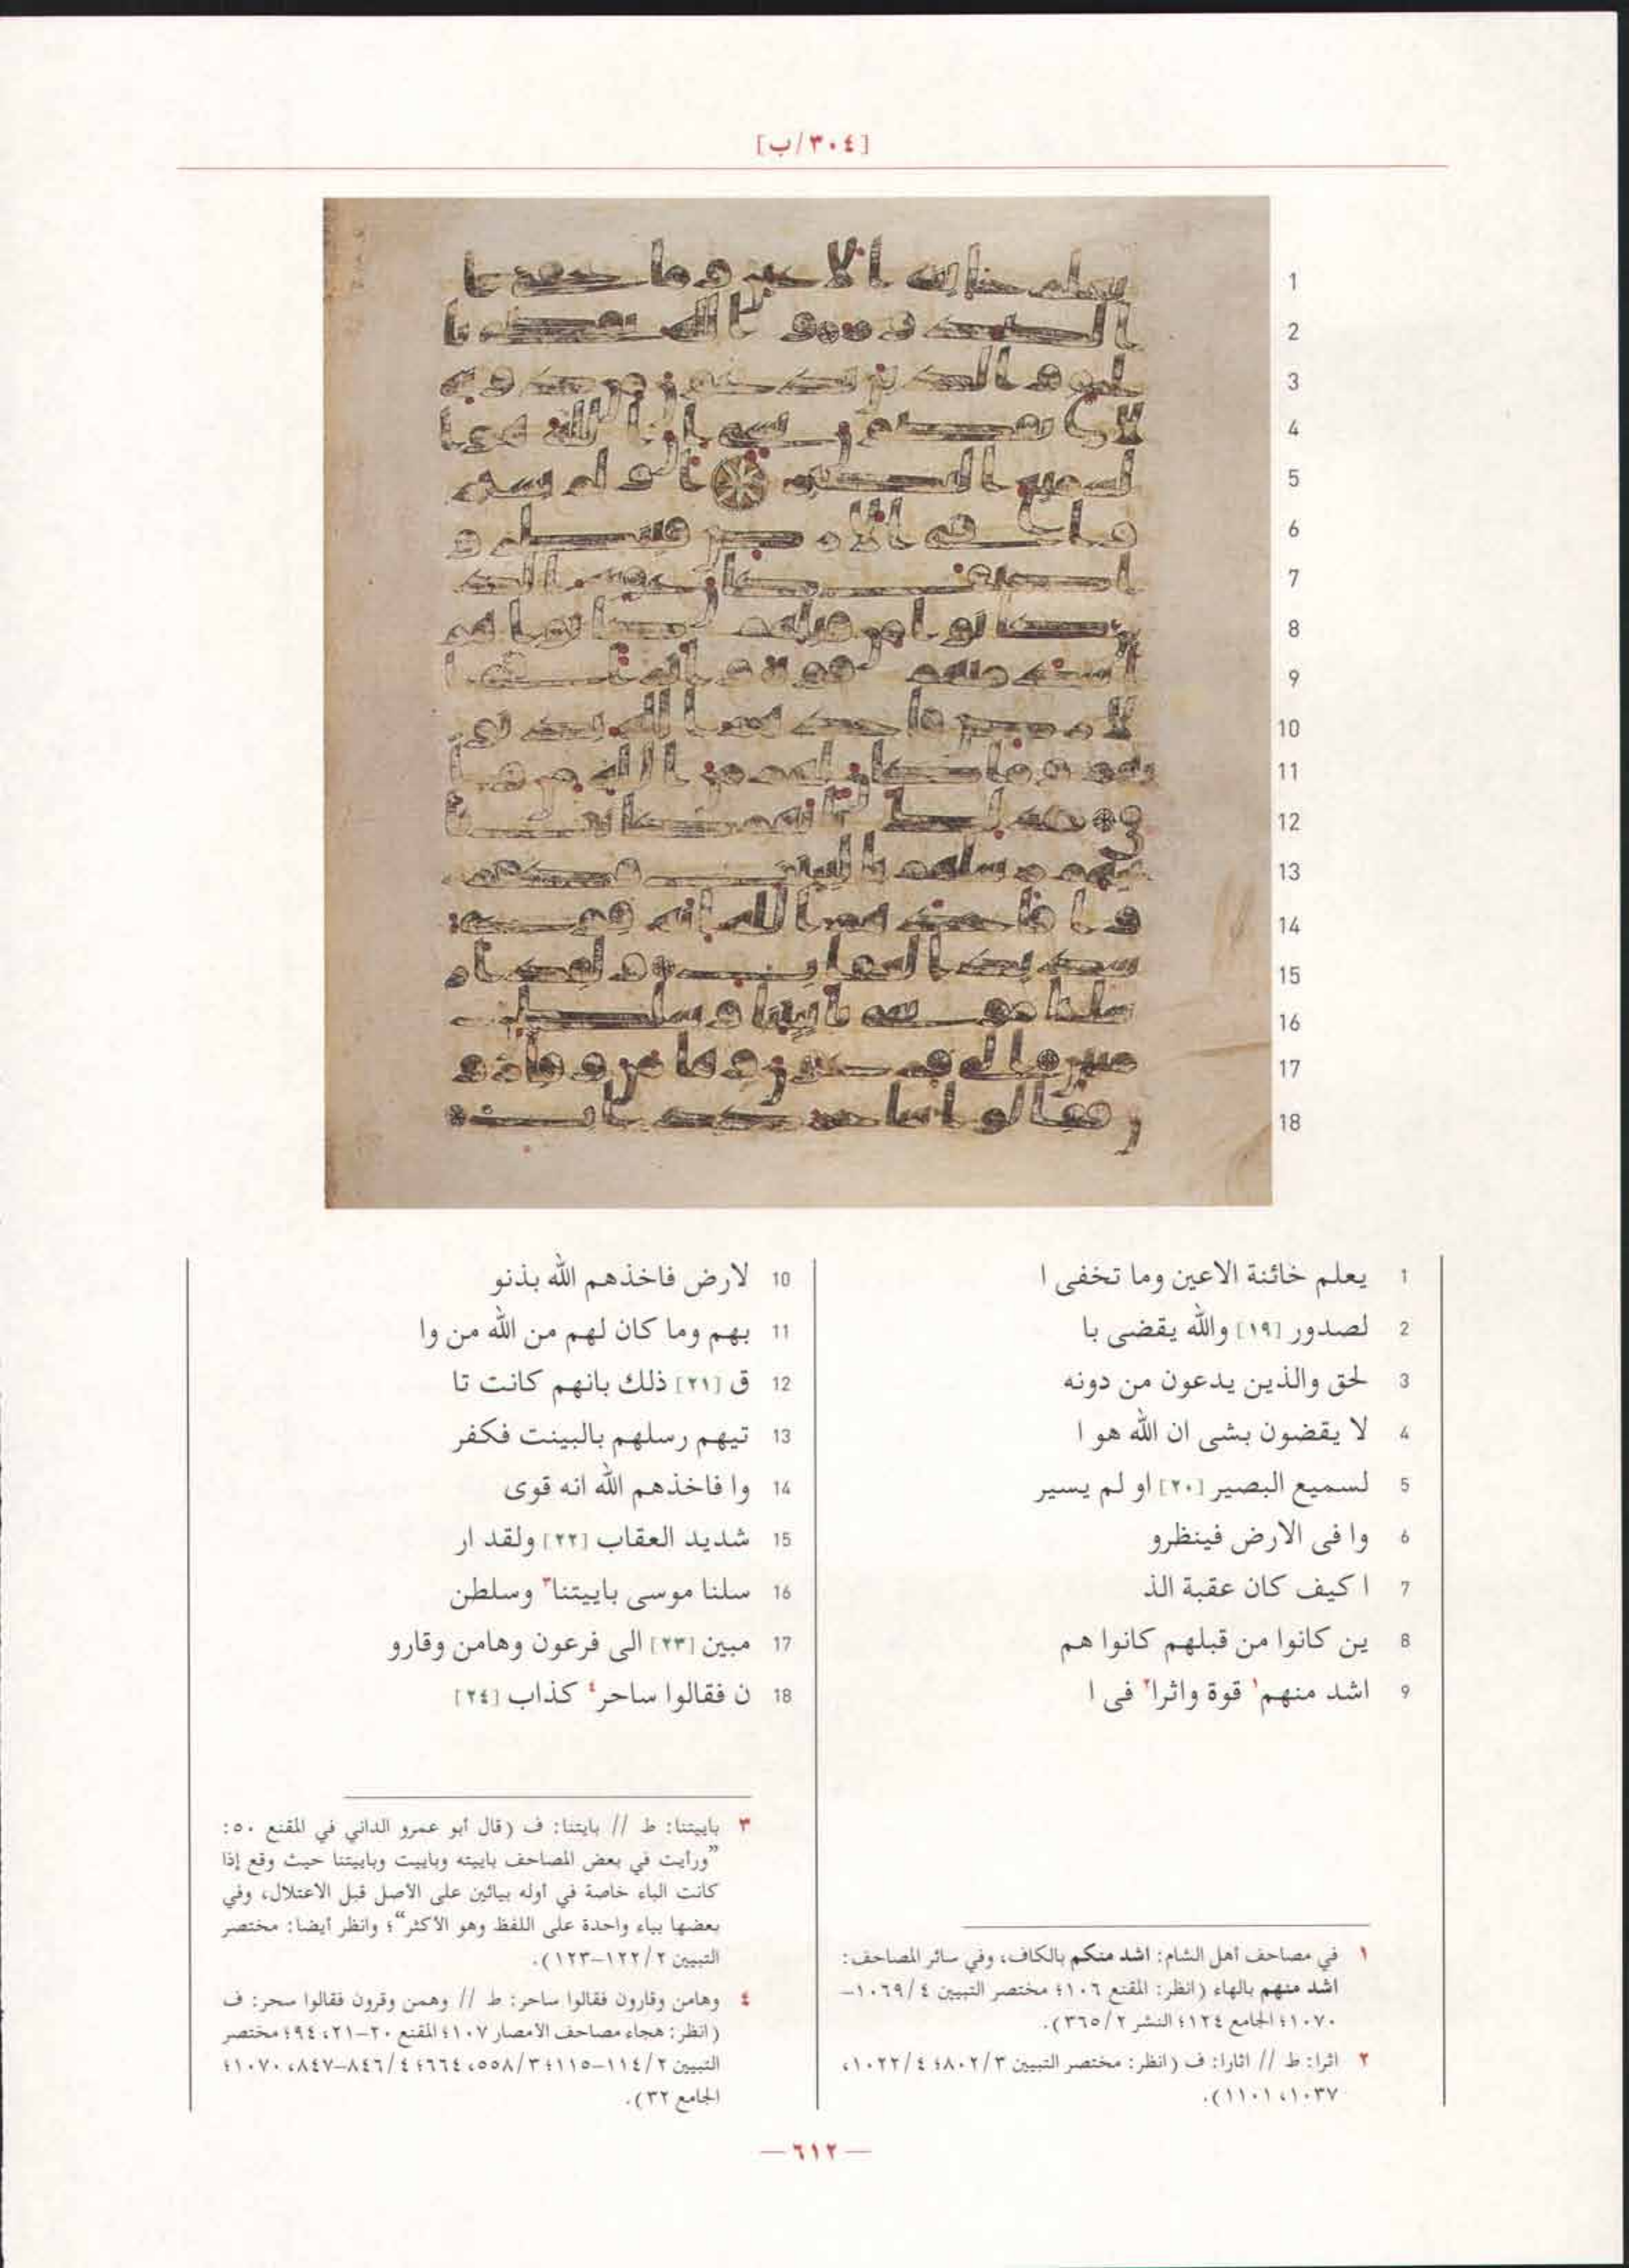 [٣٠٤/ب]
1 يعلم خائنة الاعين وما تخفى ا
2 لصدور [١٩] والله يقضى با
3 لحق والذين يدعون من دونه
4 لا يقضون بشى ان الله هو ا
5 لسميع البصير [٢٠] او لم يسير
6 وا فى الارض فينظرو
7 ا كيف كان عقبة الذ
8 ين كانوا من قبلهم كانوا هم
9 اشد منهم١ قوة واثرا٢ فى ا
10 لارض فاخذهم الله بذنو
11 بهم وما كان لهم من الله من وا
12 ق [٢١] ذلك بانهم كانت تا
13 تيهم رسلهم بالبينت فكفر
14 وا فاخذهم الله انه قوى
15 شديد العقاب [٢٢] ولقد ار
16 سلنا موسى باييتنا٣ وسلطن
17 مبين [٢٣] الى فرعون وهامن وقارو
18 ن فقالوا ساحر٤ كذاب [٢٤]
١ في مصاحف أهل الشام: اشد منكم بالكاف، وفي سائر المصاحف:
اشد منهم بالهاء (انظر: المقنع ١٠٦؛ مختصر التبيين ٤/ ١٠٦٩–
١٠٧٠؛ الجامع ١٢٤؛ النشر ٢/ ٣٦٥).
٢ اثرا: ط // اثارا: ف (انظر: مختصر التبيين ٣/ ٨٠٢؛ ٤/ ١٠٢٢،
١٠٣٧، ١١٠١).
٣ باييتنا: ط // بايتنا: ف (قال أبو عمرو الداني في المقنع ٥٠:
”ورأيت في بعض المصاحف باييته وباييت وباييتنا حيث وقع إذا
كانت الباء خاصة في أوله بيائين على الأصل قبل الاعتلال، وفي
بعضها بياء واحدة على اللفظ وهو الأكثر“؛ وانظر أيضا: مختصر
التبيين ٢/ ١٢٢–١٢٣).
٤ وهامن وقارون فقالوا ساحر: ط // وهمن وقرون فقالوا سحر: ف
(انظر: هجاء مصاحف الأمصار ١٠٧؛ المقنع ٢٠–٢١، ٩٤؛ مختصر
التبيين ٢/ ١١٤–١١٥؛ ٣/ ٥٥٨، ٦٦٤؛ ٤/ ٨٤٦–٨٤٧، ١٠٧٠؛
الجامع ٣٢).
— ٦١٢ —